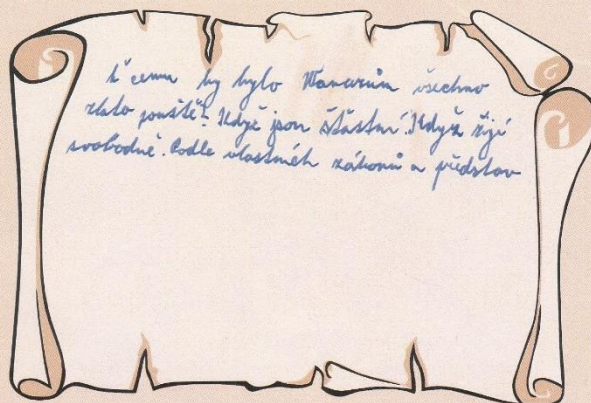 K čemu by bylo Manarům všechno
zlato pouště? Když jsou šťastní. Když žijí
svobodně. Podle vlastních zákonů a představ